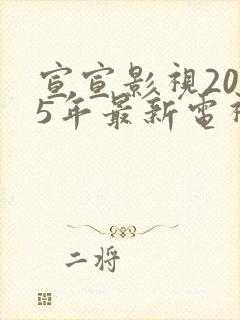 宣宣影視20
5年最新電視
二将